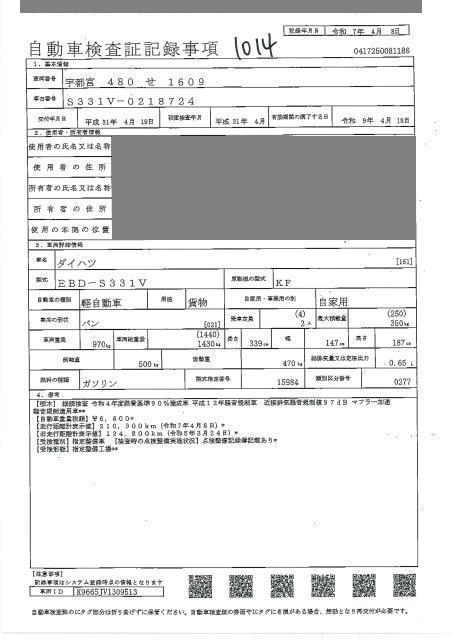 記録年月日 令和 7年 4月 8日
自動車検査証記録事項 1014 0417250081186
1. 基本情報
車両番号 宇都宮 480 せ 1609
車台番号 S331V-0218724
交付年月日 平成 31年 4月 19日 初度検査年月 平成 31年 4月 有効期間の満了する日 令和 9年 4月 18日
2. 使用者・所有者情報
使用者の氏名又は名称
使用者の住所
所有者の氏名又は名称
所有者の住所
使用の本拠の位置
3. 車両詳細情報
車名 ダイハツ [151]
型式 EBD-S331V 原動機の型式 KF
自動車の種別 軽自動車 用途 貨物 自家用・事業用の別 自家用
車体の形状 バン [021] 乗車定員 (4) 2人 最大積載量 (250) 350kg
車両重量 970kg 車両総重量 (1440) 1430kg 長さ 339cm 幅 147cm 高さ 187cm
前軸重 500kg 後軸重 470kg 総排気量又は定格出力 0.65 L
燃料の種類 ガソリン 型式指定番号 15984 類別区分番号 0277
4. 備考
【栃木】 継続検査 令和4年度燃費基準90%達成車 平成12年騒音規制車 近接排気騒音規制値97dB マフラー加速
騒音規制適用車**
【自動車重量税額】¥6,600*
【走行距離計表示値】210,300km(令和7年4月8日)*
【旧走行距離計表示値】134,800km(令和5年3月24日)*
【受検種別】指定整備車 【検査時の点検整備実施状況】点検整備記録簿記載あり*
【受検形態】指定整備工場**
【注意事項】
記録事項はシステム登録時点の情報となります
車両ID K9665JV1309513
自動車検査証のICタグ部分は折り曲げずに保管ください。自動車検査証の券面やICタグに毀損がある場合、無効となり再交付が必要です。